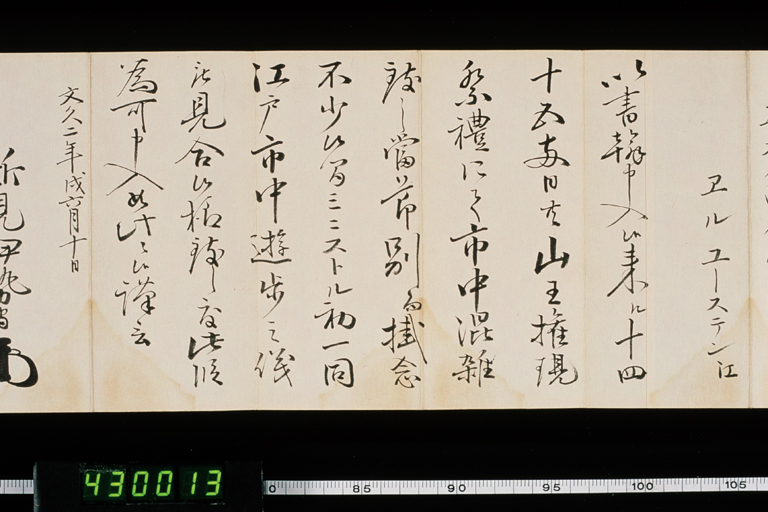 ヱルユーステン江
以書翰申入候来ル十四
十五両日共山王権現
祭禮にて市中混雑
致し當節別而掛念
不少候間ミニストル初一同
江戸市中遊歩之儀
見合候様致し度此段
為可申入如此候謹言
文久二年戌六月十日
新見伊勢守
430013
0 85 90 95 100 105